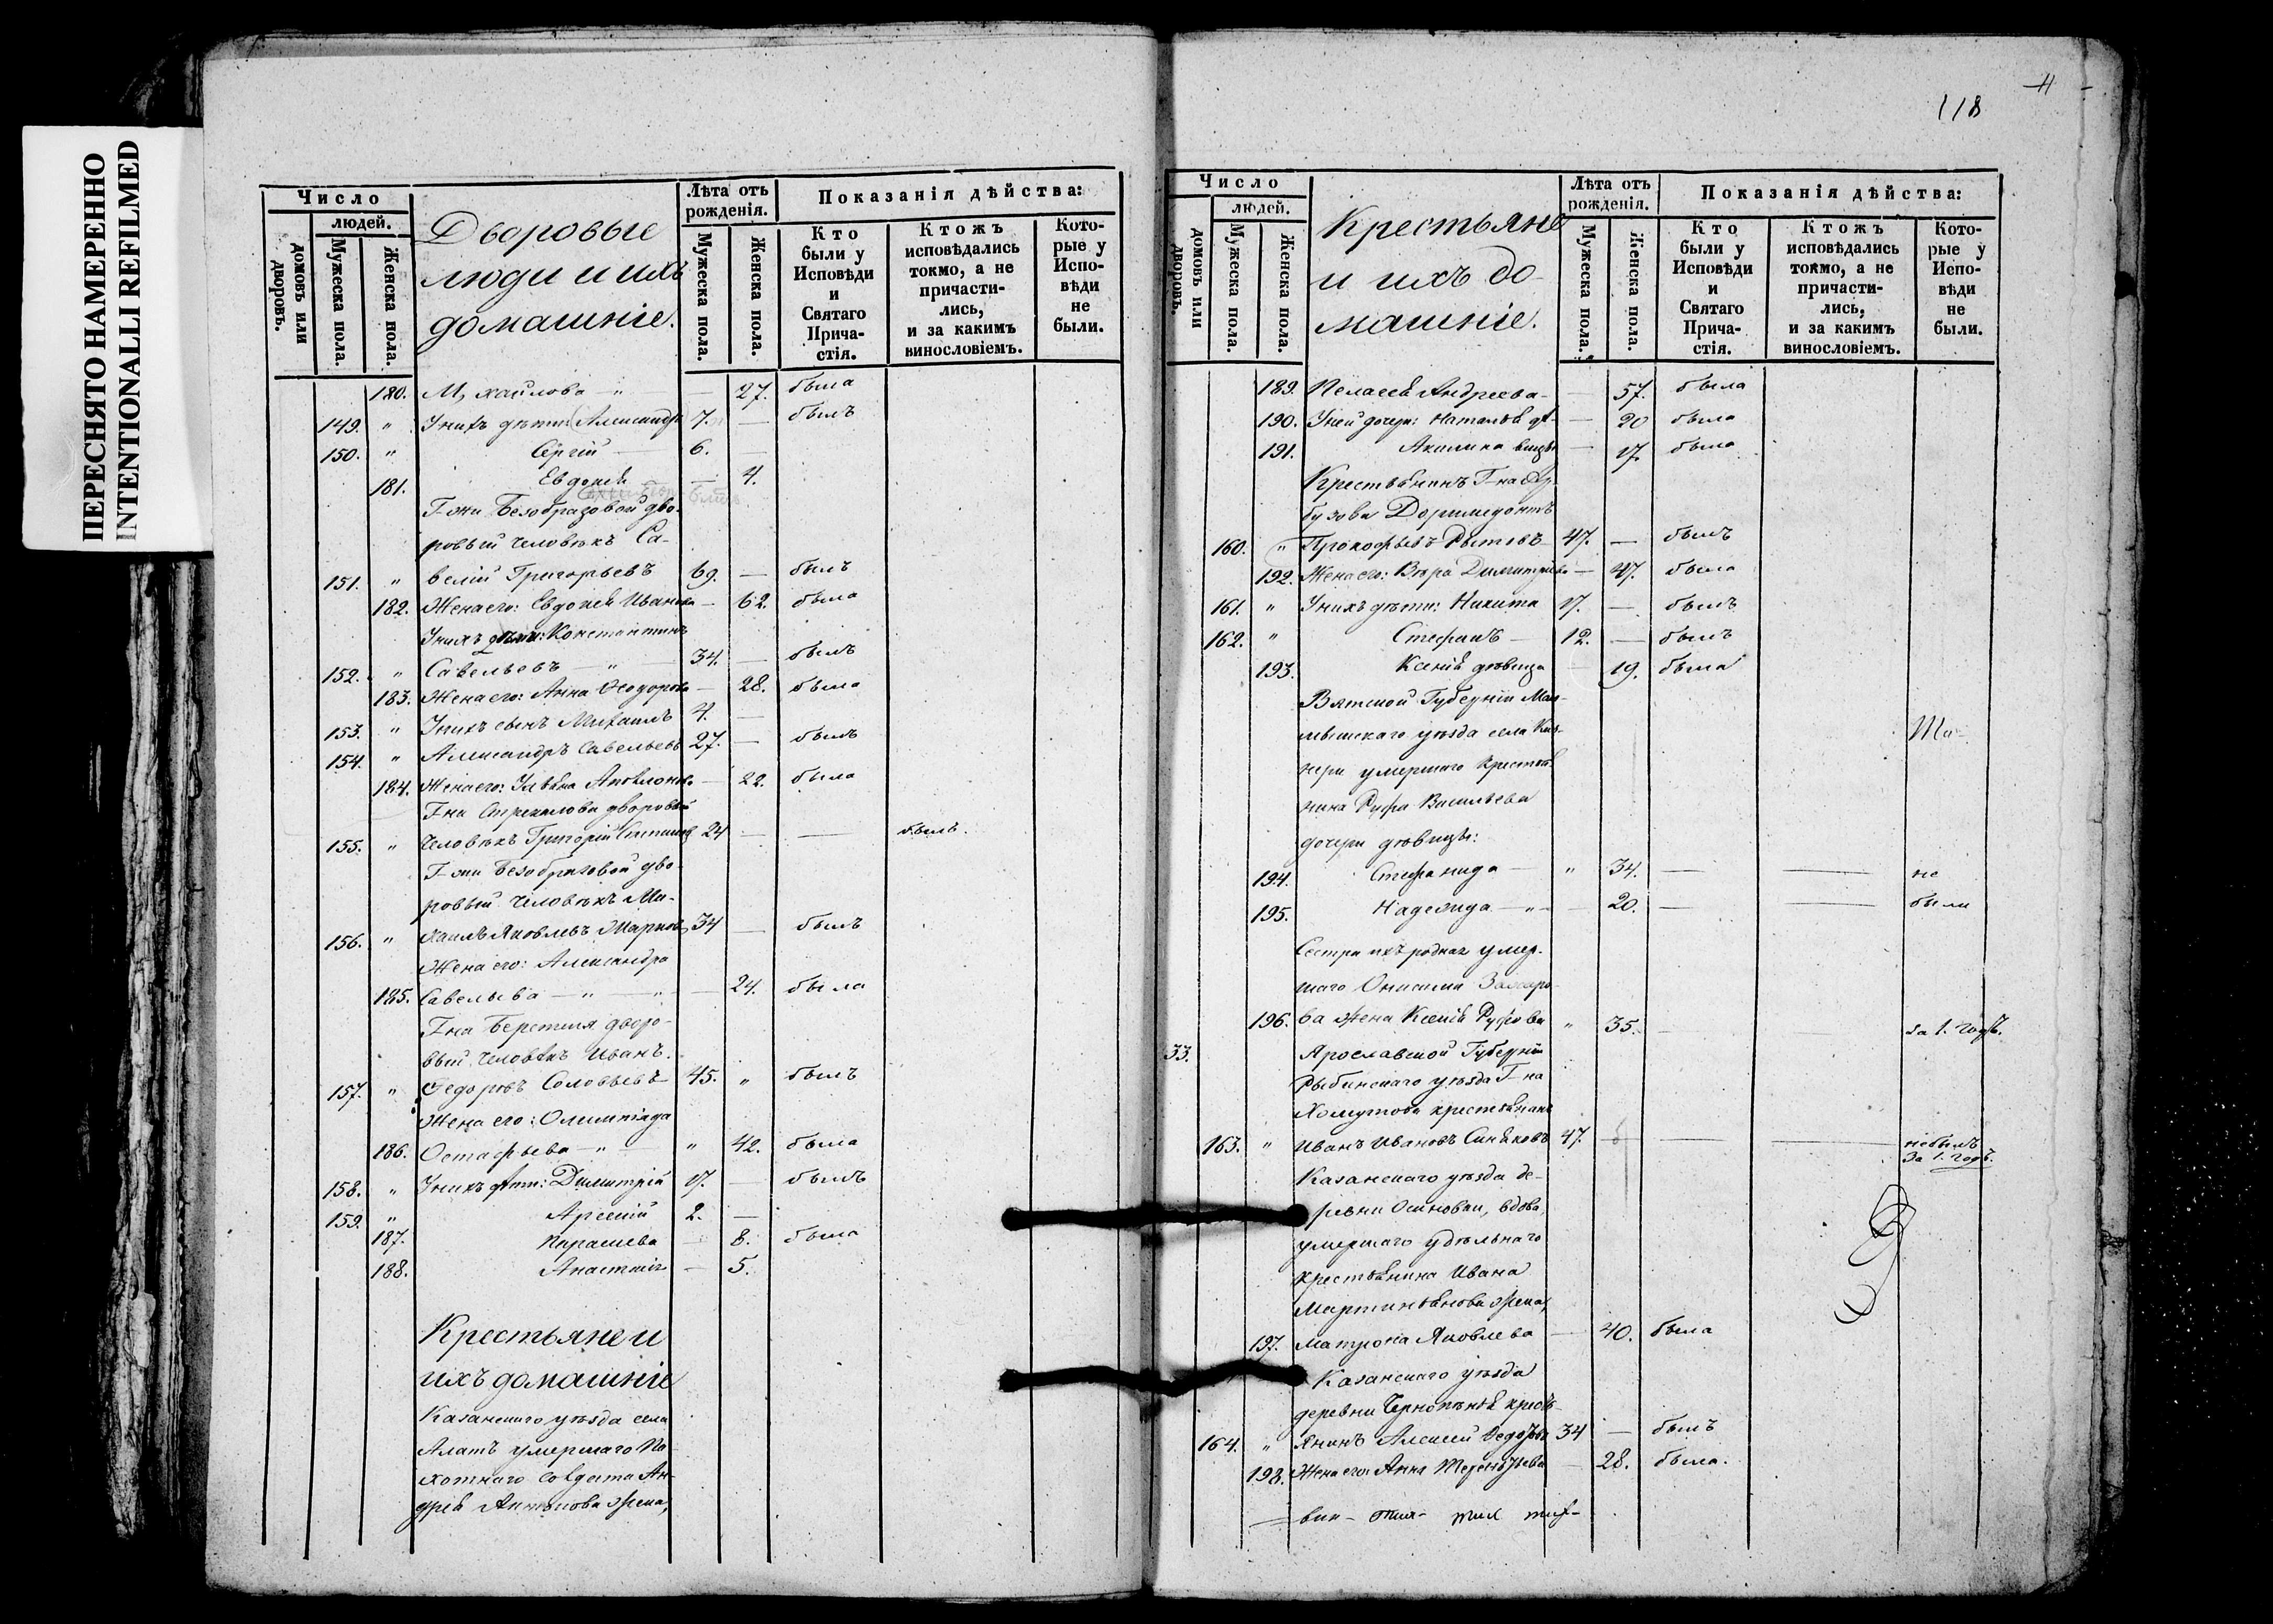 ПЕРЕСНЯТО НАМЕРЕННО
INTENTIONALLI REFILMED
Число
людей.
домовъ или дворовъ.
Мужеска пола.
Женска пола.
Дворовые
люди и ихъ
домашніе.
Лѣта отъ
рожденія.
Мужеска пола.
Женска пола.
Показанія дѣйства:
Кто
были у
Исповѣди
и
Святаго
Прича-
стія.
Ктожъ
исповѣдались
токмо, а не
причасти-
лись,
и за какимъ
винословіемъ.
Кото-
рые у
Испо-
вѣди
не
были.
180. Михайлова — " — — 27. была
149. " У нихъ дѣти: Александръ 7. — былъ
150. " Сергій — 6. —
181. Евдокія — 4.
Г-жи Безобразовой дво-
ровый человѣкъ Са-
151. " велій Григорьевъ 69. — былъ
182. Жена его: Евдокія Иванова — 62. была
У нихъ дѣти: Константинъ
152. " Савельевъ — " — 34. — былъ
183. Жена его: Анна Ѳеодорова — 28. была
153. " У нихъ сынъ Михаилъ 4. —
154. " Александръ Савельевъ 27. — былъ
184. Жена его: — 22. была
Г-на Стрекалова дворовый
155. " человѣкъ Григорій 24 — — былъ.
Г-жи Безобразовой дво-
ровый человѣкъ Ми-
156. " хаилъ Яковлевъ 34 — былъ
Жена его: Александра
185. Савельева — " — " — 24. была
Г-на дворо-
вый человѣкъ Иванъ
157. " Ѳедоровъ Соловьевъ 45. " былъ
Жена его: Олимпіада
186. Остафьева — " — " 42. была
158. " У нихъ дѣти: Димитрій 17. — былъ
159. " Арсеній 2. —
187. Параскева — 8. была
188. Анастасія — 5.
Крестьяне и
ихъ домашніе
Казанскаго уѣзда села
Алатъ умершаго Па-
хотнаго солдата Ан-
дрея Антонова жена,
118
Число
людей.
домовъ или дворовъ.
Мужеска пола.
Женска пола.
Крестьяне
и ихъ до-
машніе.
Лѣта отъ
рожденія.
Мужеска пола.
Женска пола.
Показанія дѣйства:
Кто
были у
Исповѣди
и
Святаго
Прича-
стія.
Ктожъ
исповѣдались
токмо, а не
причасти-
лись,
и за какимъ
винословіемъ.
Кото-
рые у
Испо-
вѣди
не
были.
189. Пелагея Андреева — — 57. была
190. У ней дочери: Наталья — 20 была
191. Акилина — 17. была
Крестьянинъ Г-на
бузова Доримедонтъ
160. " Прокофьевъ 47. — былъ
192. Жена его: Вѣра Димитріева — 47. была
161. " У нихъ дѣти: Никита 17. — былъ
162. " Стефанъ — 12. — былъ
193. Ксенія дѣвица 19. была
Вятской Губерніи Мал-
мышскаго уѣзда села Киз-
нери умершаго крестья-
нина Руфа Васильева
дочери дѣвицы:
194. Стефанида — " 34. — — не
195. Надежда — " — — 20. — — были
Сестра ихъ родная умер-
шаго Онисима Захаро-
196. ва жена Ксенія Руфова " 35. — — за 1. годъ.
33. Ярославской Губерніи
Рыбинскаго уѣзда Г-на
Хомутова крестьянинъ
163. " Иванъ Ивановъ Синяковъ 47. — — — не былъ
за 1. годъ.
Казанскаго уѣзда де-
ревни Осиновки, вдова,
умершаго удѣльнаго
крестьянина Ивана
Мартиньянова жена,
197. Матрона Яковлева — 40. была
Казанскаго уѣзда
деревни крестья-
164. " янинъ Алексѣй Ѳедоровъ 34 — былъ
198. Жена его: Анна Терентьева — 28. была.